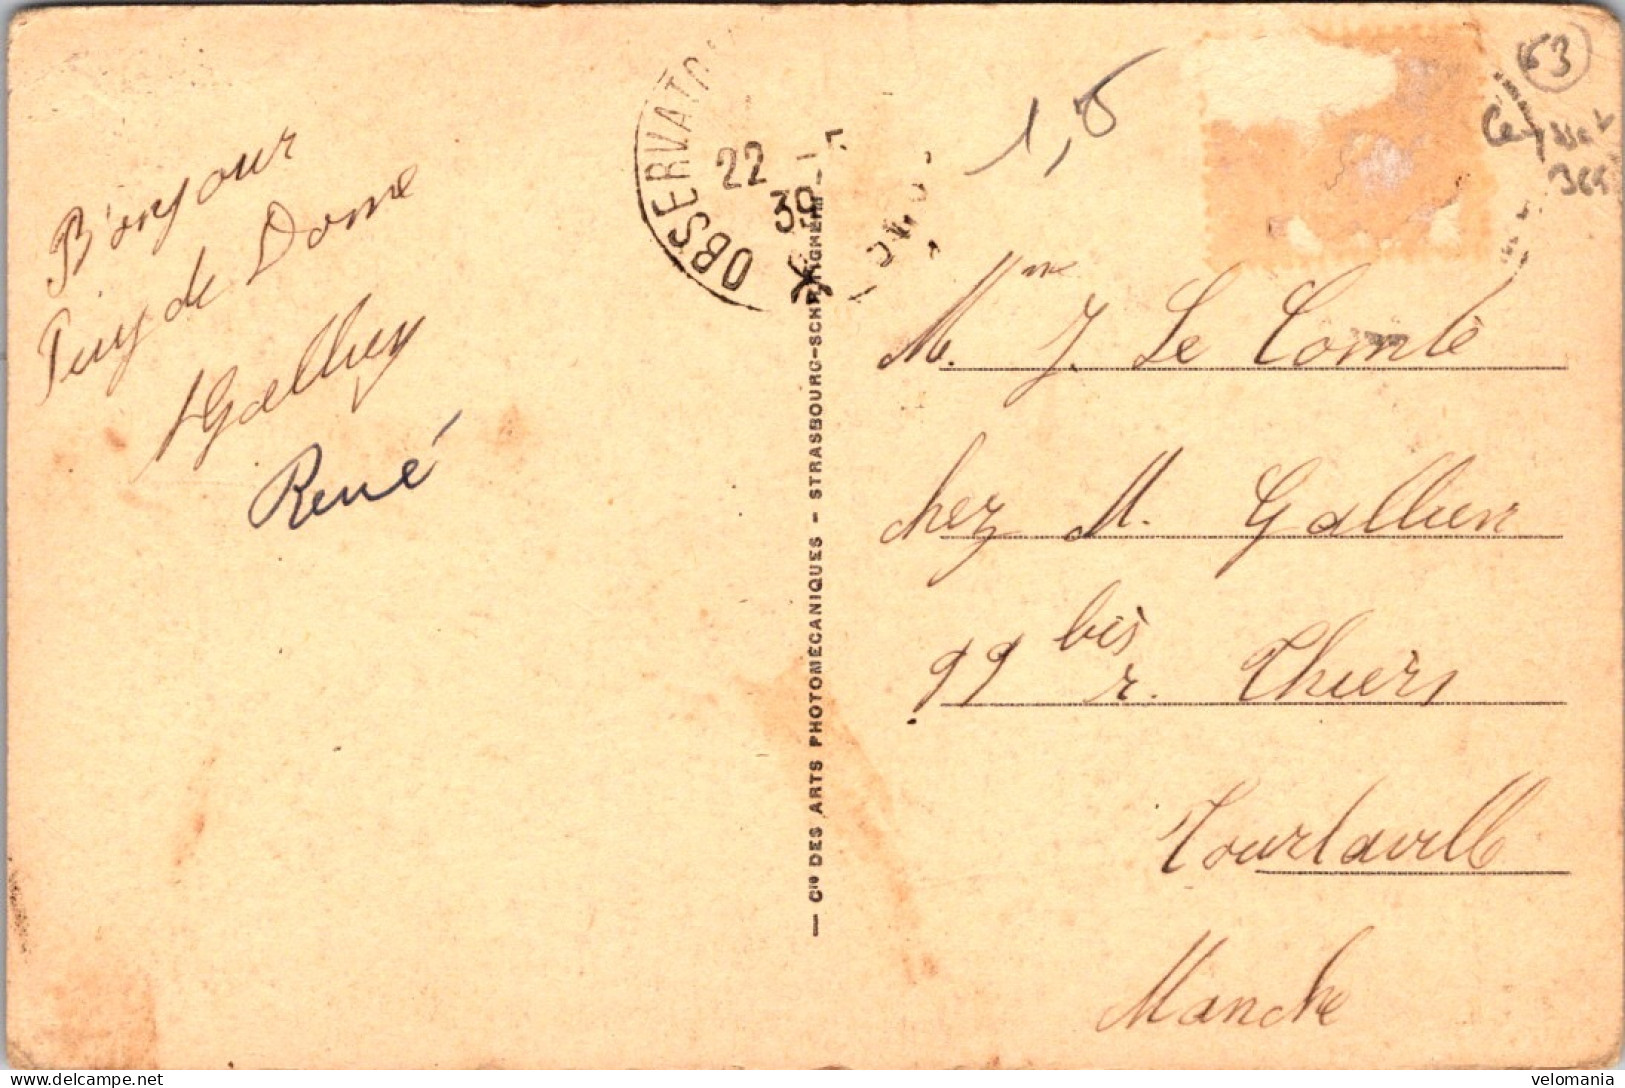 Bonjour
Puy de Dome
Gallien
René
OBSERVATO
22
39
1,5
63
Ceyssat
Mme J. Le Comte
chez M. Gallien
99 bis r. Thiers
Tourlaville
Manche
— Cie DES ARTS PHOTOMÉCANIQUES - STRASBOURG-SCHILTIGHEIM —
velomania